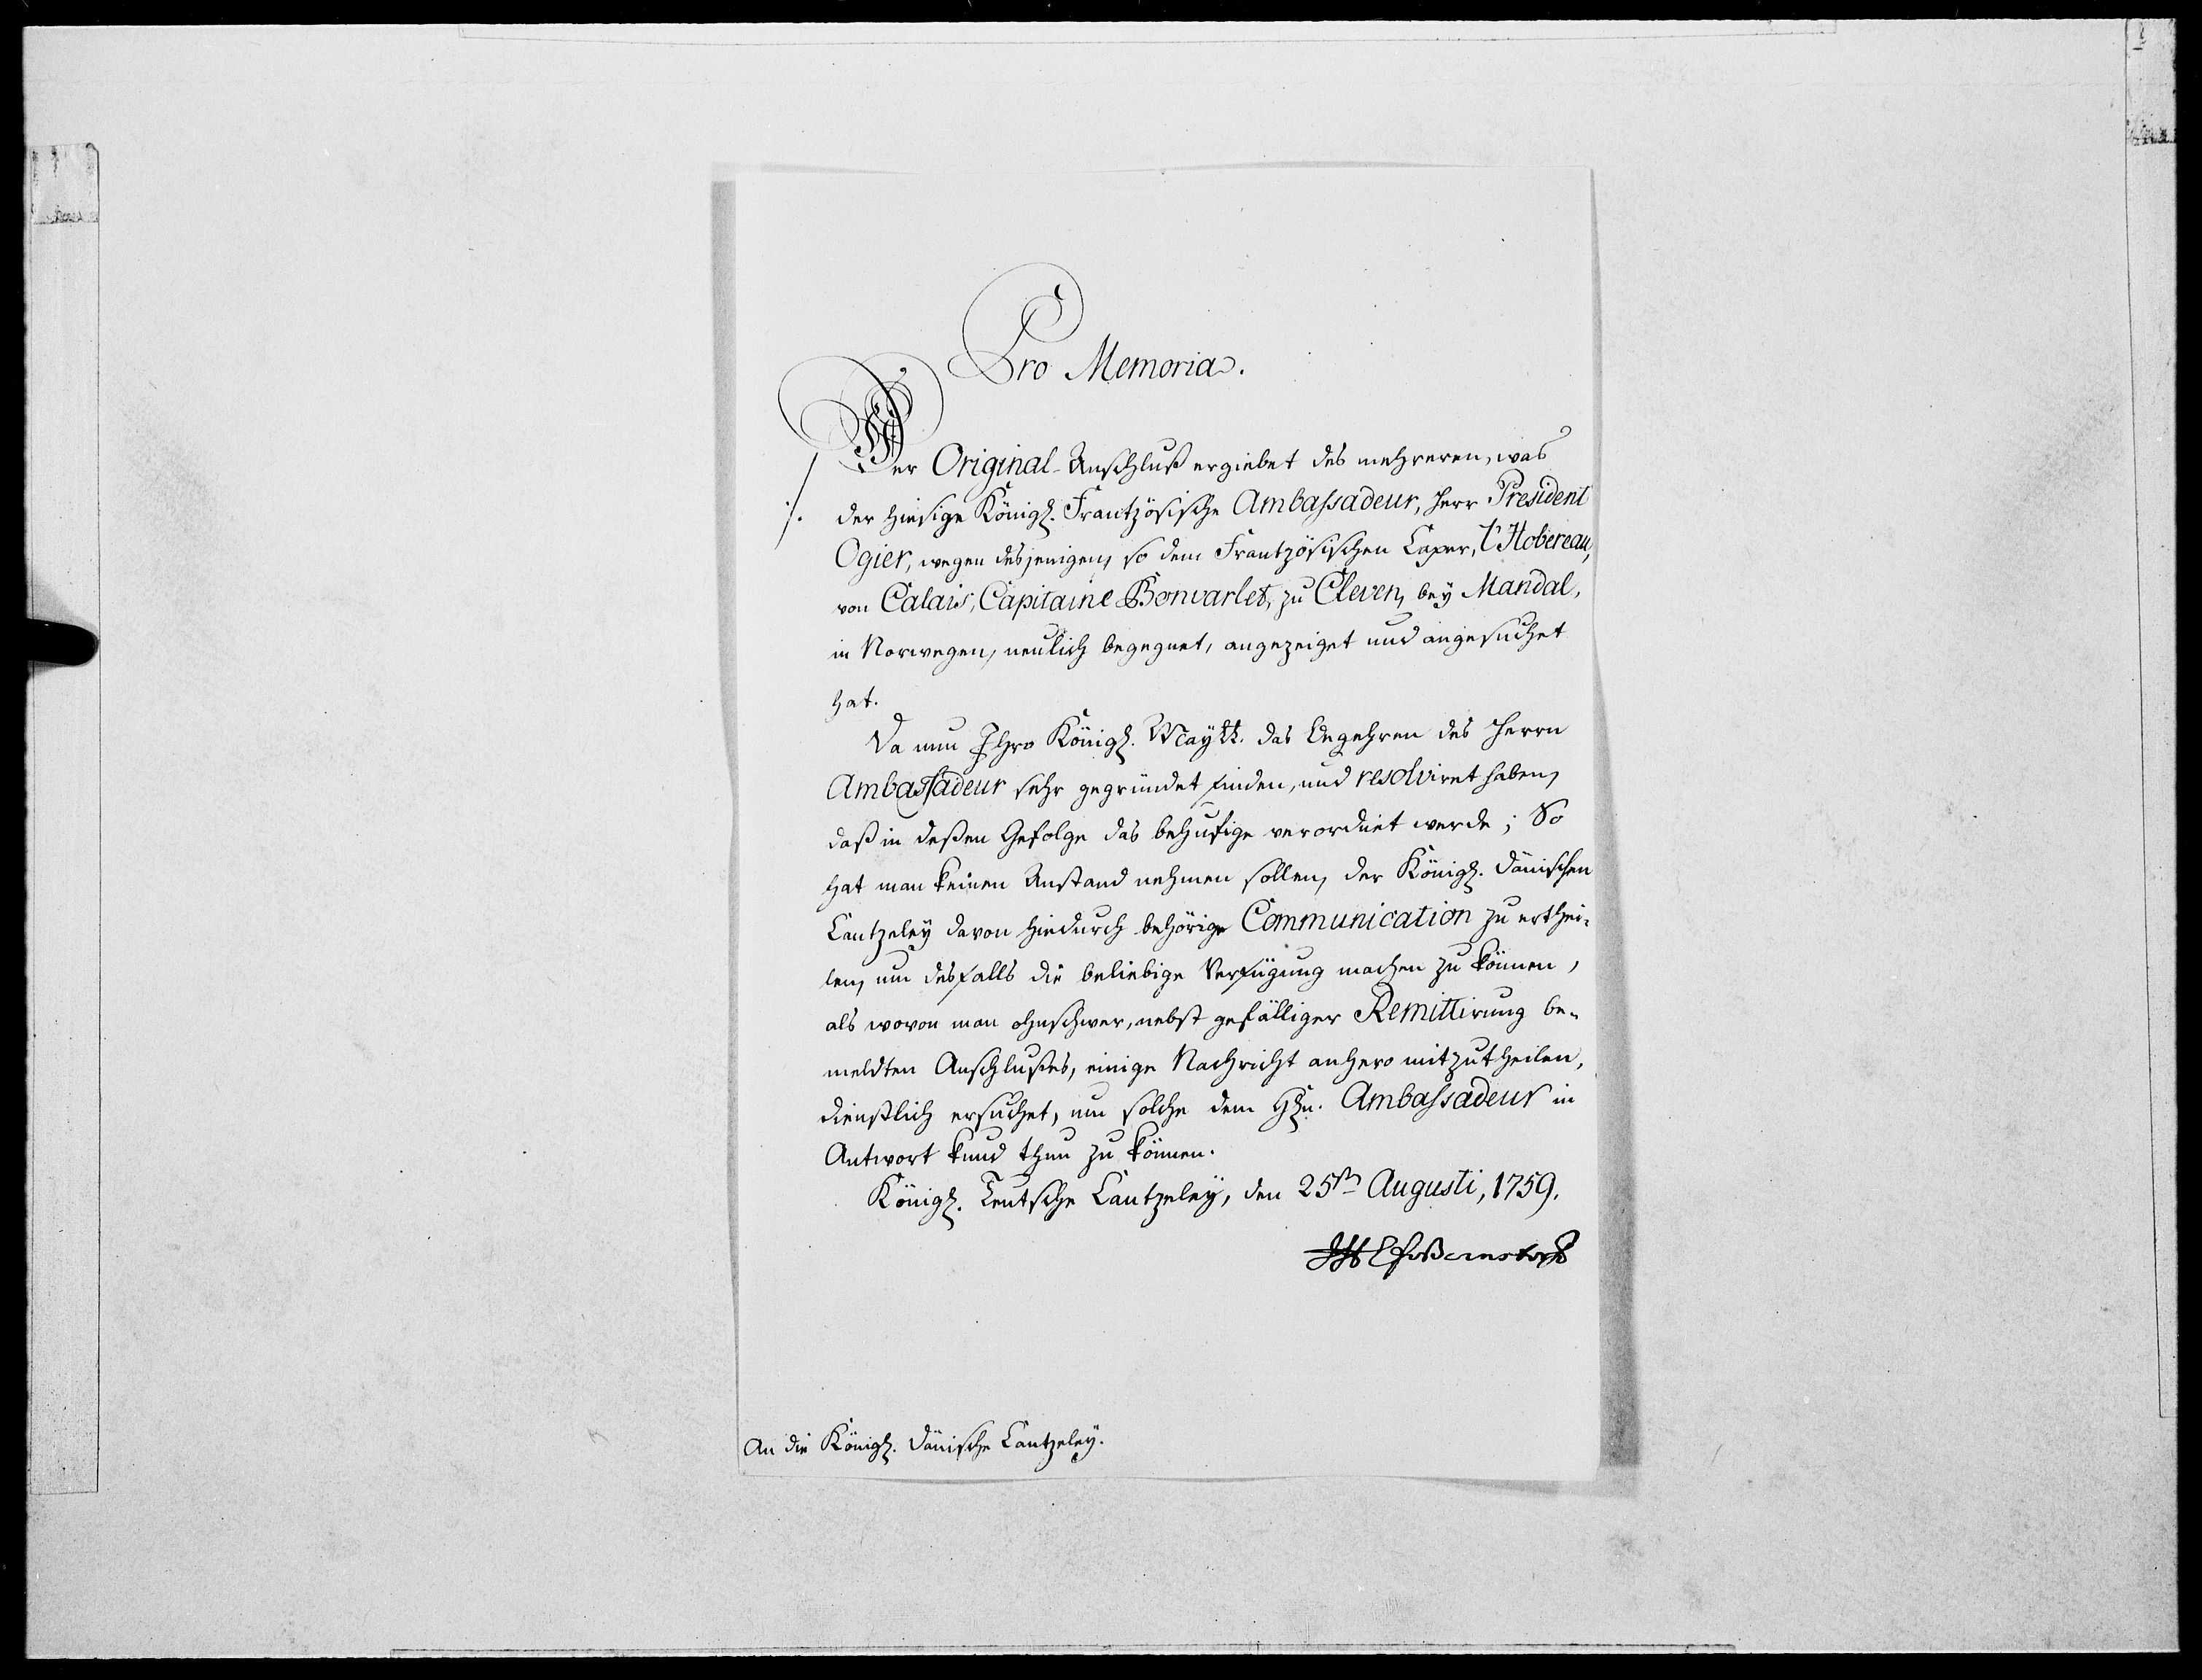 Pro Memoria.
Der Original-Anschluß ergiebet des mehreren, was
./. der hiesige Königl. Frantzösische Ambassadeur, Herr President
Ogier, wegen desjenigen, so dem Frantzösischen Caper, l'Hobereau,
von Calais, Capitaine Bonvarlet, zu Cleven, bey Mandal,
in Norwegen, neulich begegnet, angezeiget und angesuchet
hat.
Da nun Ihro Königl. Maytt. das Begehren des Herrn
Ambassadeur sehr gegründet finden, und resolviret haben,
daß in deßen Gefolge das behufige verordnet werde; So
hat man keinen Anstand nehmen sollen, der Königl. Dänischen
Cantzeley davon hiedurch behörige Communication zu erthei-
len, um desfalls die beliebige Verfügung machen zu können,
als wovon man ohnschwer, nebst gefälliger Remittirung be-
meldten Anschlußes, einige Nachricht anhero mitzutheilen,
dienstlich ersuchet, um solche dem Hln. Ambassadeur in
Antwort kund thun zu können.
Königl. Teutsche Cantzeley, den 25ten Augusti, 1759.
JHEfvBernstorff
An die Königl. Dänische Cantzeley.